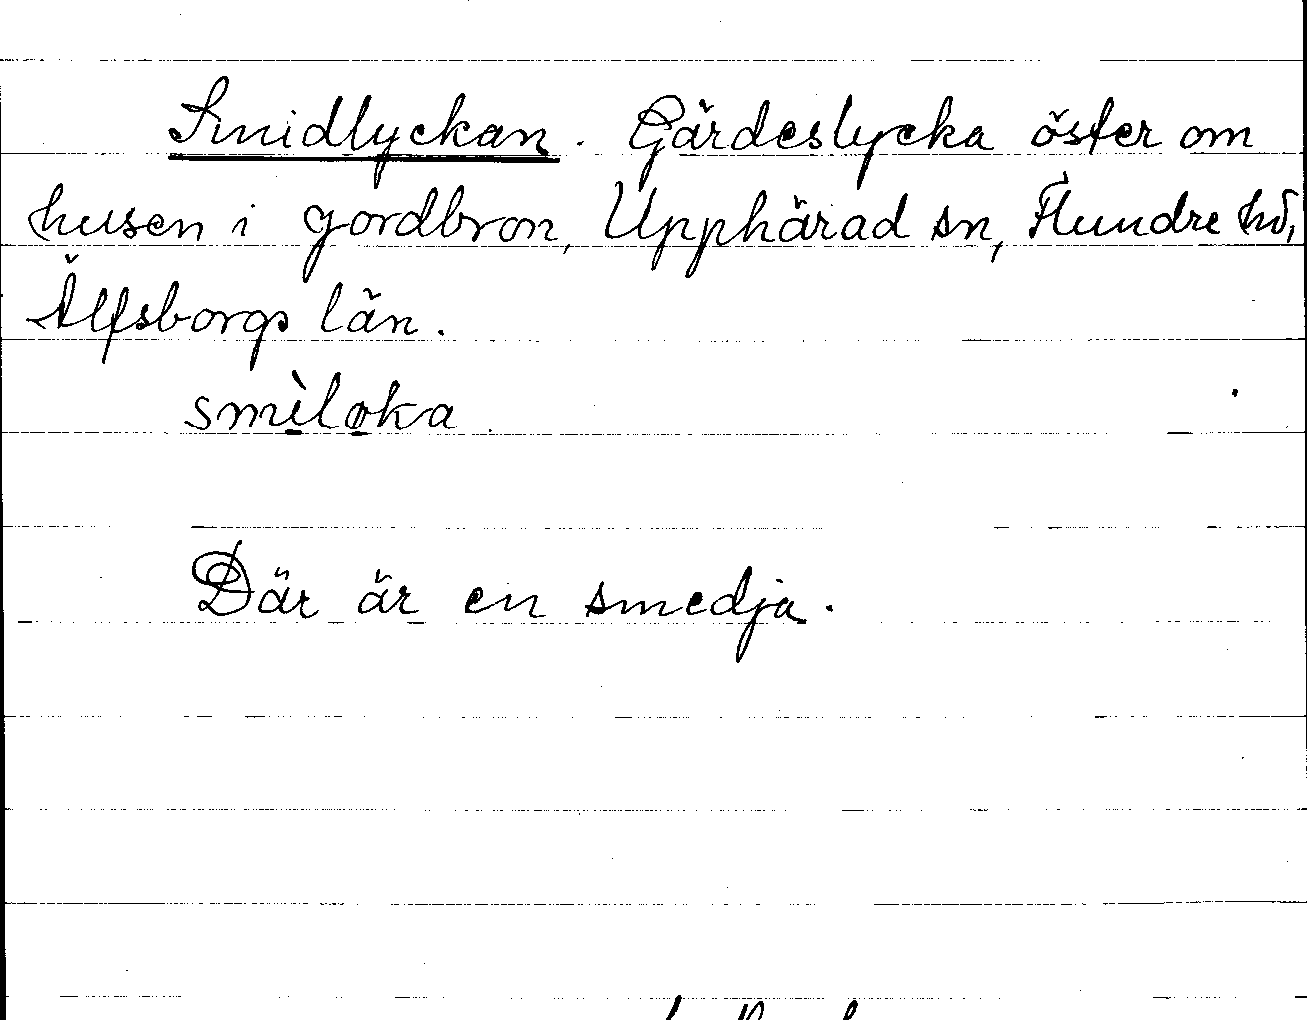 Smidlyckan. Gärdeslycka öster om
husen i Gordbron, Upphärad sn, Flundre hd,
Älfsborgs län.
smìlọka
Där är en smedja.